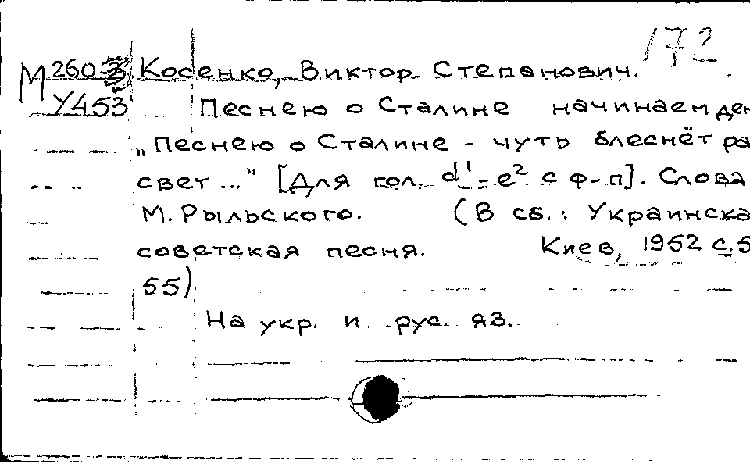 172
М 260-3 Косенко, Виктор Степанович.
У453 Песнею о Сталине начинаем ден
„Песнею о Сталине - чуть блеснёт ра
свет ..." [Для гол. d¹-e² с ф-п]. Слова
М. Рыльского. (В сб.: Украинска
советская песня. Киев, 1952 с.5
55)
На укр. и рус. яз.